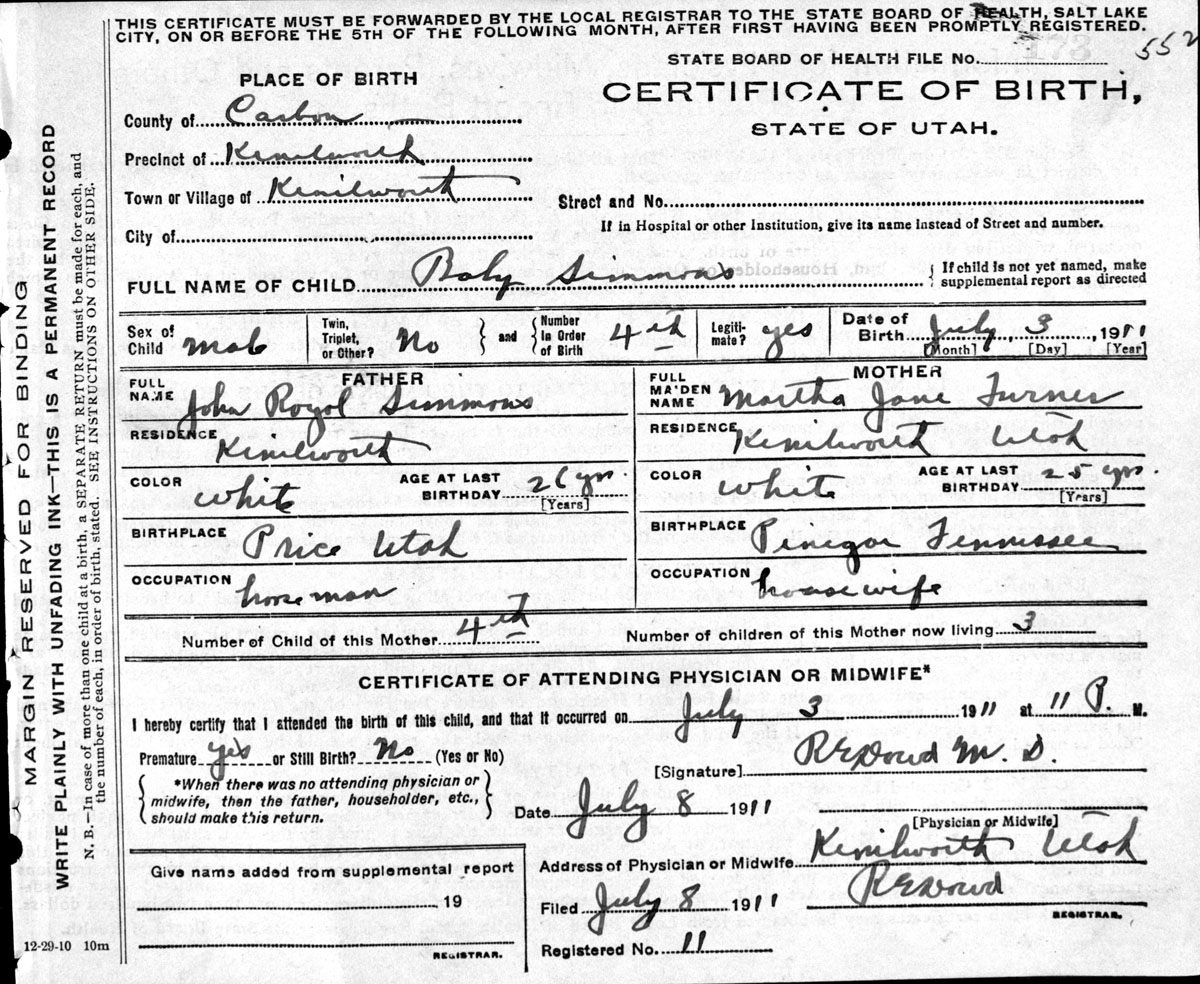 THIS CERTIFICATE MUST BE FORWARDED BY THE LOCAL REGISTRAR TO THE STATE BOARD OF HEALTH, SALT LAKE
CITY, ON OR BEFORE THE 5TH OF THE FOLLOWING MONTH, AFTER FIRST HAVING BEEN PROMPTLY REGISTERED.
552
STATE BOARD OF HEALTH FILE No. 173
CERTIFICATE OF BIRTH,
STATE OF UTAH.
PLACE OF BIRTH
County of Carbon
Precinct of Kenilworth
Town or Village of Kenilworth
Street and No.
City of
If in Hospital or other Institution, give its name instead of Street and number.
FULL NAME OF CHILD Baby Simmons
If child is not yet named, make
supplemental report as directed
Sex of
Child male
Twin,
Triplet,
or Other? No
and
Number
In Order
of Birth 4th
Legiti-
mate? yes
Date of
Birth July 3, 1911
[Month] [Day] [Year]
FATHER
FULL
NAME John Royal Simmons
RESIDENCE Kenilworth
COLOR White
AGE AT LAST
BIRTHDAY 26 yrs.
[Years]
BIRTHPLACE Price Utah
OCCUPATION horseman
MOTHER
FULL
MAIDEN
NAME Martha Jane Turner
RESIDENCE Kenilworth Utah
COLOR White
AGE AT LAST
BIRTHDAY 25 yrs.
[Years]
BIRTHPLACE Tennissee
OCCUPATION housewife
Number of Child of this Mother 4th
Number of children of this Mother now living 3
CERTIFICATE OF ATTENDING PHYSICIAN OR MIDWIFE*
I hereby certify that I attended the birth of this child, and that it occurred on July 3 1911 at 11 P. M.
Premature yes or Still Birth? No (Yes or No)
*When there was no attending physician or
midwife, then the father, householder, etc.,
should make this return.
[Signature] REDowd M. D.
Date July 8 1911
[Physician or Midwife]
Address of Physician or Midwife Kenilworth Utah
Filed July 8 1911 REDowd
REGISTRAR.
Registered No. 11
Give name added from supplemental report
19
REGISTRAR.
12-29-10 10m
MARGIN RESERVED FOR BINDING
WRITE PLAINLY WITH UNFADING INK—THIS IS A PERMANENT RECORD
N. B.—In case of more than one child at a birth, a SEPARATE RETURN must be made for each, and
the number of each, in order of birth, stated. SEE INSTRUCTIONS ON OTHER SIDE.